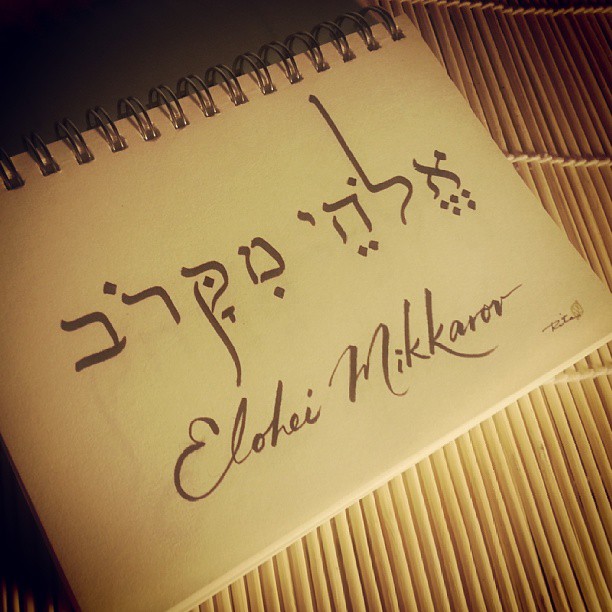 אֱלֹהֵי מִקָּרֹב
Elohei Mikkarov